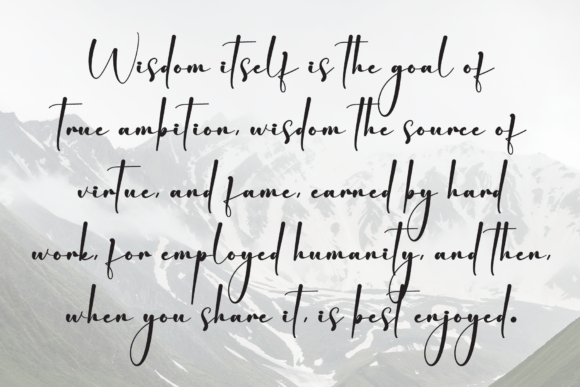 Wisdom itself is the goal of
true ambition, wisdom the source of
virtue, and fame, earned by hard
work, for employed humanity, and then,
when you share it, is best enjoyed.